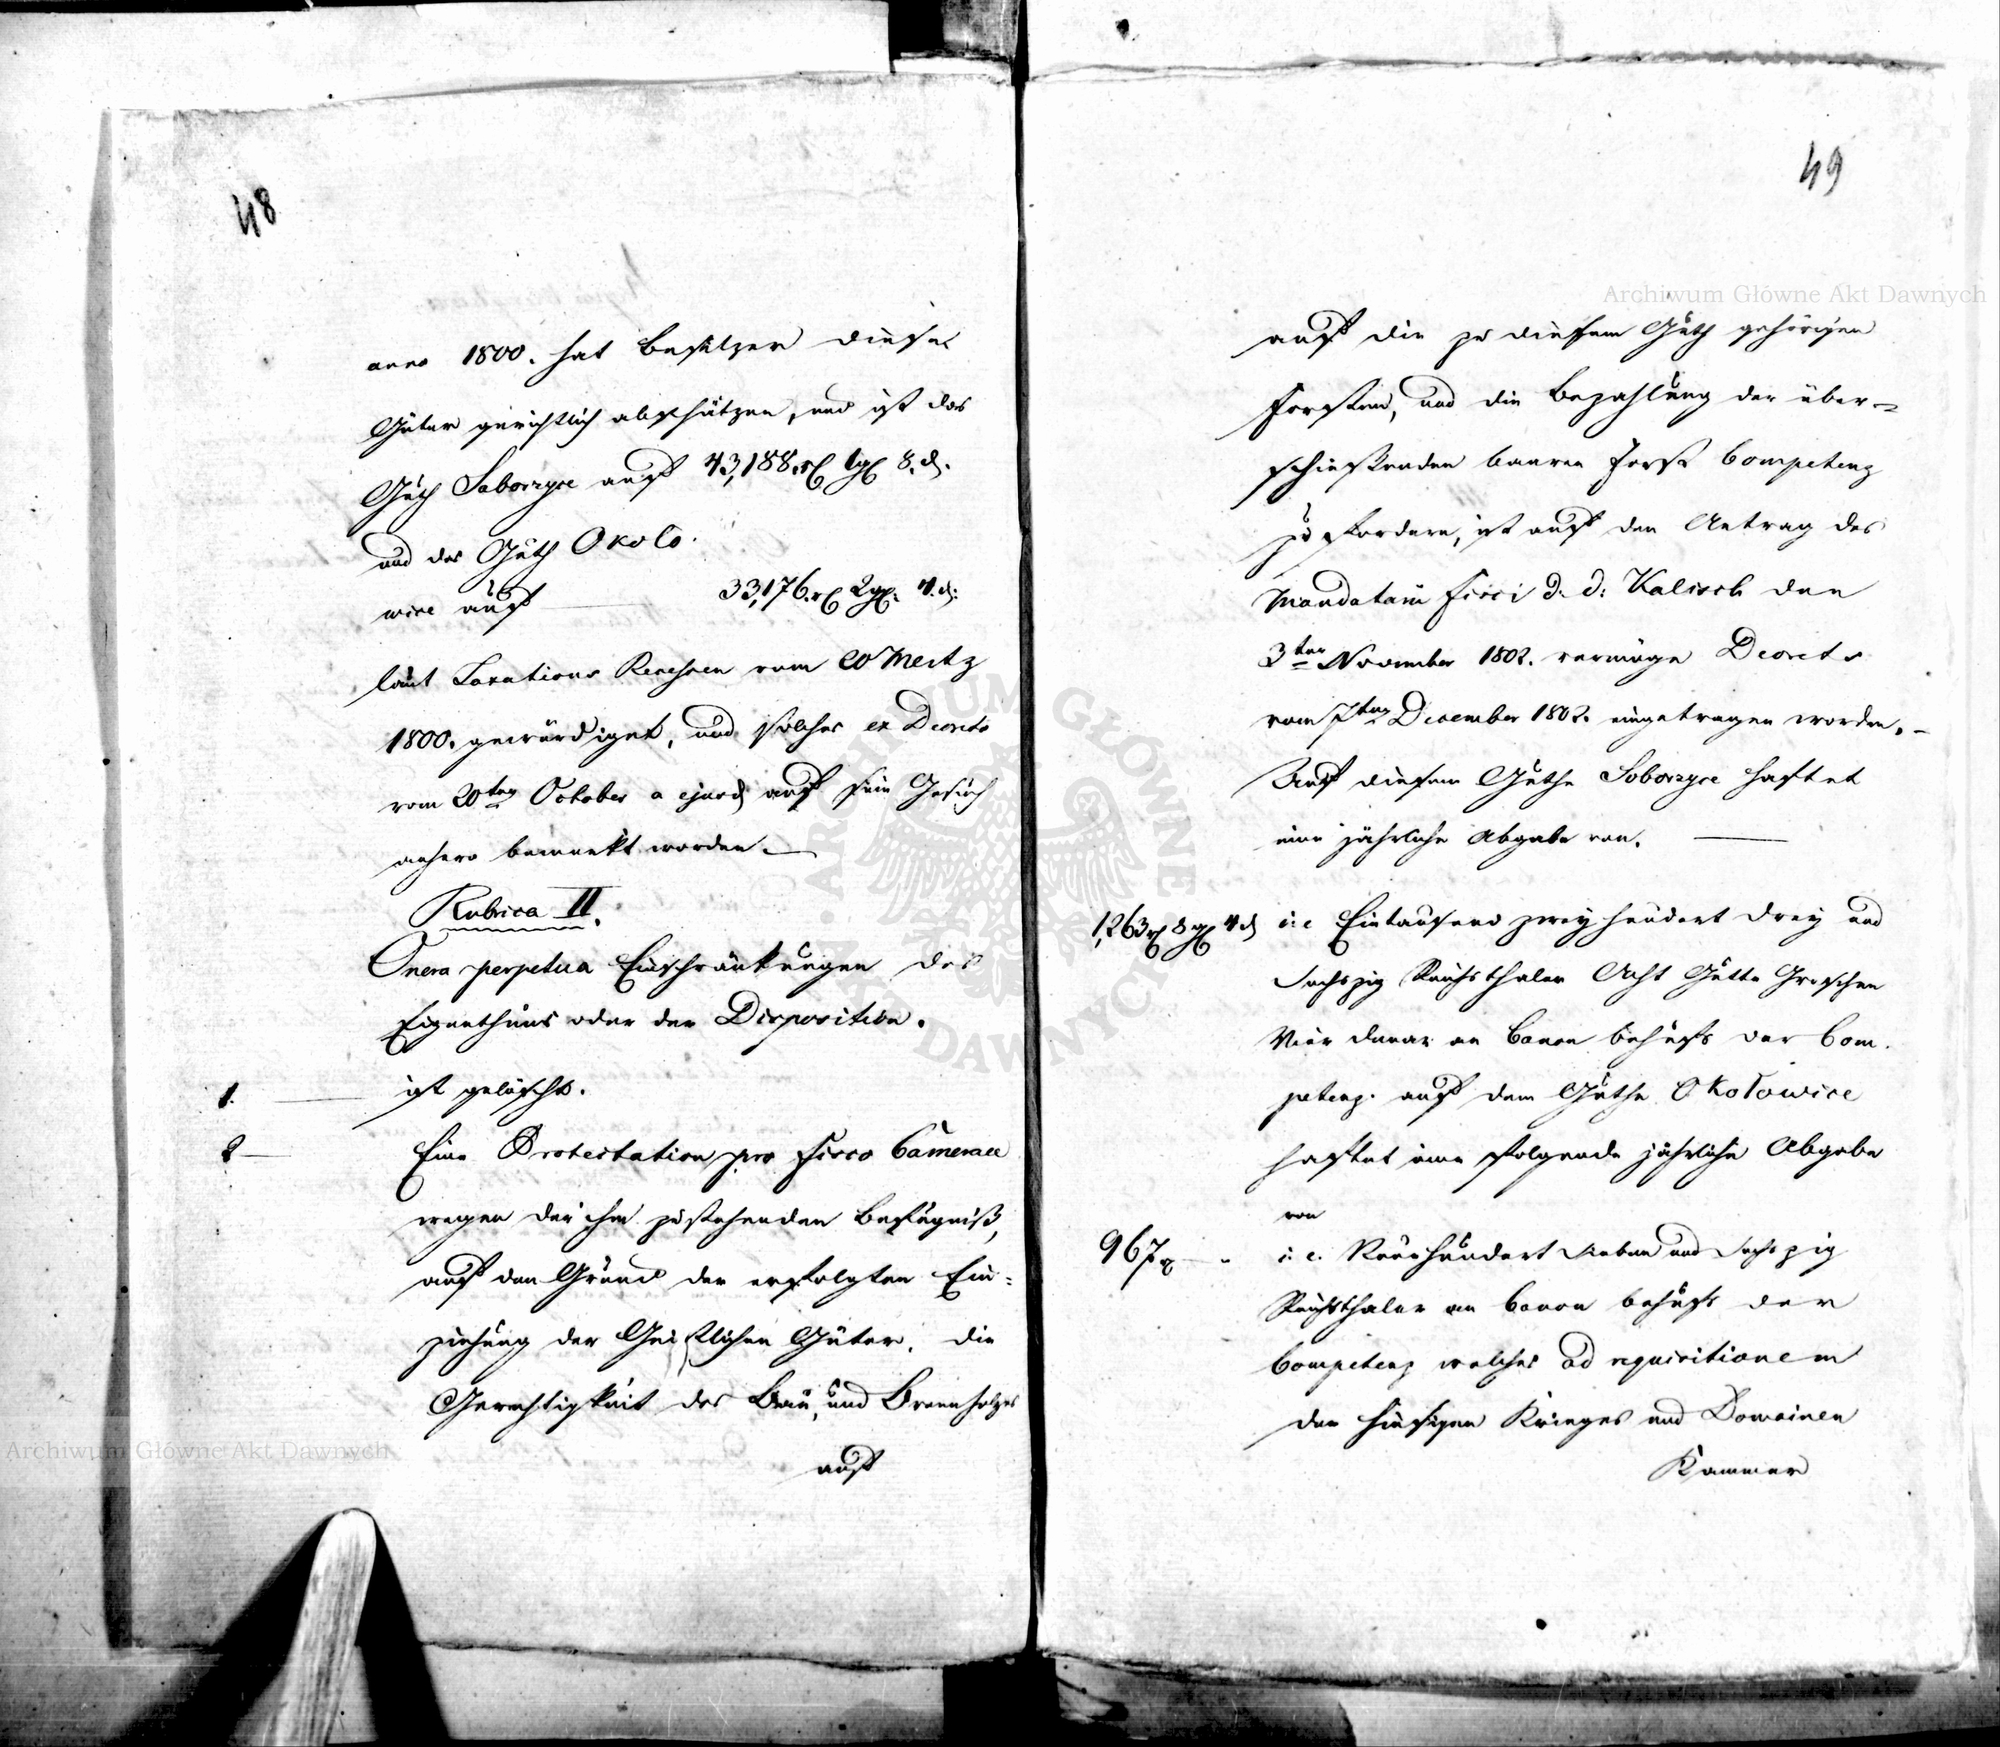 48
anno 1800. hat Besitzer dieser
Güter gerichtlich abschätzen, und ist das
Guth Soborzyce auf 43,188 rℓ 1 gℓ 8 d.
und das Guth Okolo-
wice auf — 33,176 rℓ 2 gℓ. 4 d:
laut Taxations Recessen vom 20 Mertz
1800. gewürdiget, und solches ex Decreto
vom 20ten October a ejusd auf sein Gesuch
anhero bemerkt worden. —
Rubrica II.
Onera perpetua Einschränkungen des
Eigenthums oder der Disposition.
1. — ist gelöscht.
2 — Eine Protestation pro Fisco Camerae
wegen der ihm zustehenden Befugniß,
auf den Grund der erfolgten Ein=
ziehung der Geistlichen Güter, die
Gerechtigkeit des Bau, und Brennholzes
auf
49
Archiwum Główne Akt Dawnych
auf die zu diesem Guth gehörigen
Forsten, und die Bezahlung der über=
schießenden baaren Forst Competenz
zu fordern, ist auf den Antrag des
Mandatarii Fisci d. d: Kalisch den
3ten November 1802. vermöge Decrets
vom 7ten December 1802. eingetragen worden. –
Auf diesem Guthe Soborzyce haftet
eine jährliche Abgabe von. —
1,263 rℓ 8 gℓ 4 d i: e Eintausend zwey hundert drey und
Sechszig Reichsthaler Acht Gutte Groschen
Vier denar an Canon behufs der Com-
petenz. auf dem Guthe Okołowice
haftet eine folgende jährliche Abgabe
von
967 rℓ — - i: e. Neunhundert Sieben und Sechszig
Reichsthaler an Canon behufs der
Competenz welches ad requisitionem
der hiesigen Krieges und Domainen
Kammer
Archiwum Główne Akt Dawnych
ARCHIWUM GŁÓWNE AKT DAWNYCH